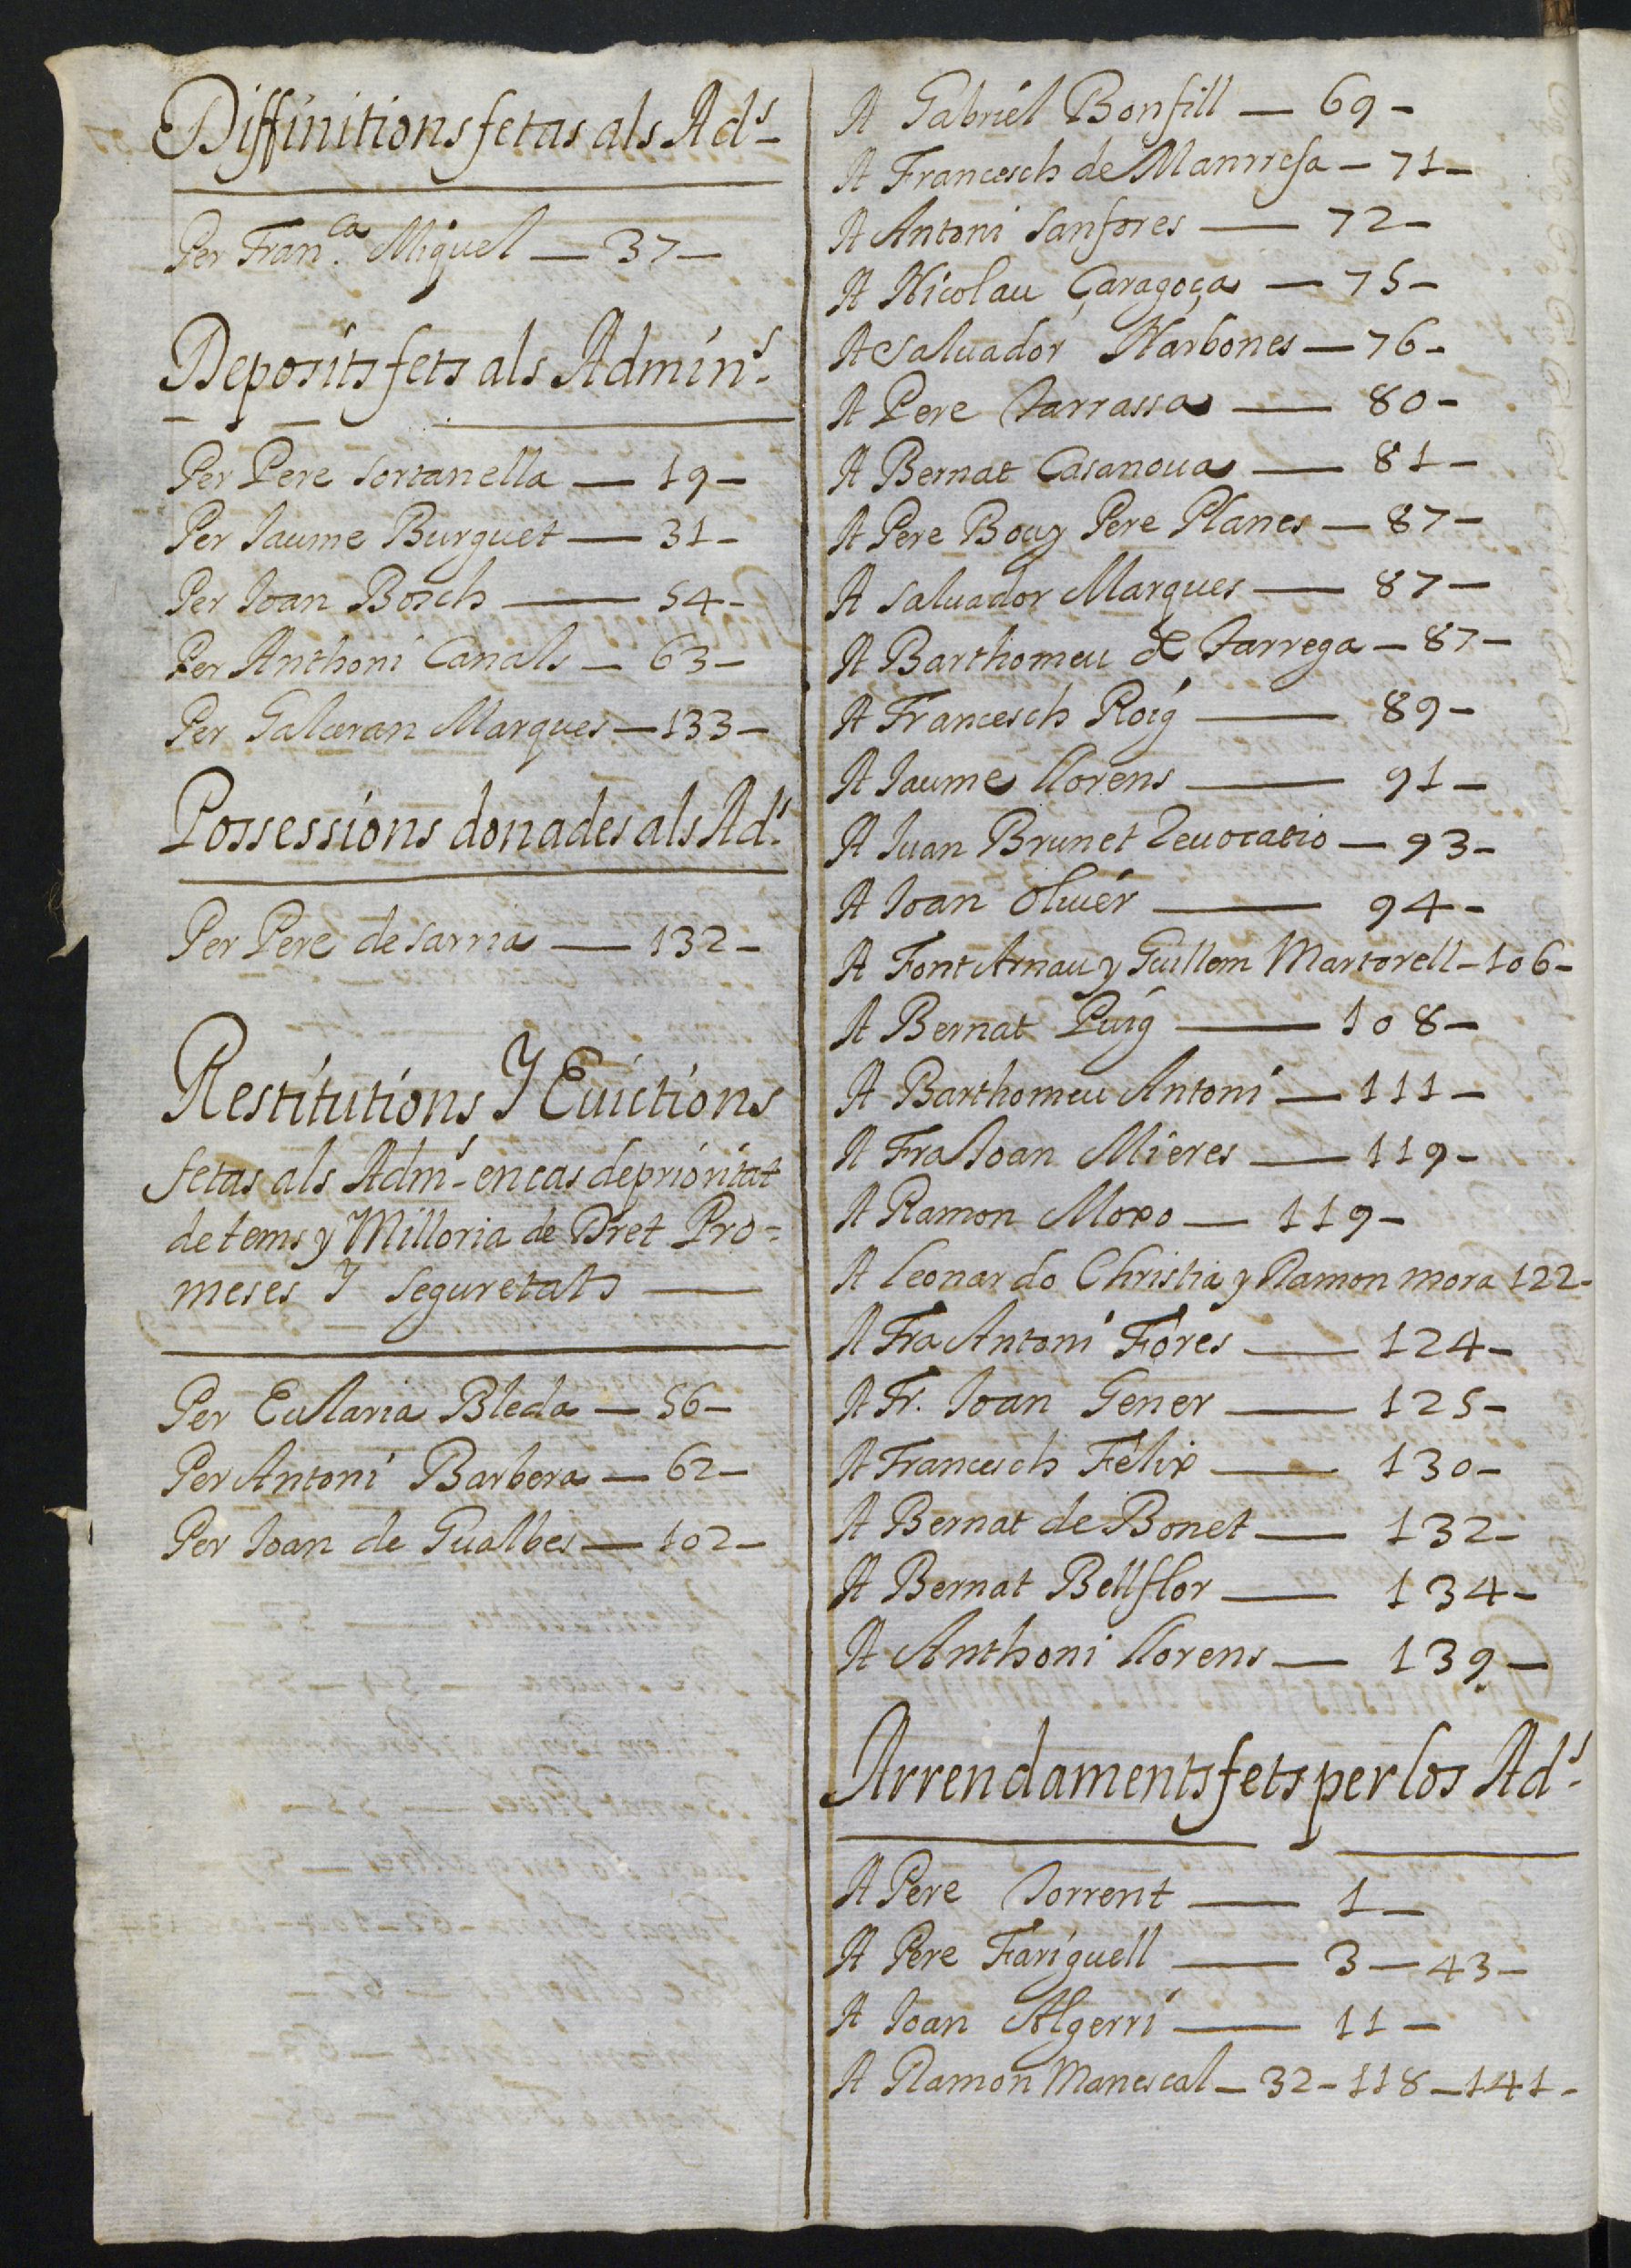 Diffinitions fetas als Ad.s
Per Fran.ca Miquel — 37 —
Deposits fets als Admin.s
Per Pere sortanella — 19 —
Per Jaume Burguet — 31 —
Per Joan Bosch — 54 —
Per Anthoni Canals — 63 —
Per Galceran Marques — 133 —
Possessions donades als Ad.s
Per Pere de sarria — 132 —
Restitutions Y Euictions
fetas als Adm.s en cas de prioritat
de tems y Milloria de Dret Pro=
meses Y seguretats —
Per Eularia Bleda — 56 —
Per Antoni Barbera — 62 —
Per Joan de Gualbes — 102 —
A Gabriel Bonfill — 69 —
A Francesch de Manrresa — 71 —
A Antoni sanfores — 72 —
A Nicolau Çaragoça — 75 —
A saluador Narbones — 76 —
A Pere Tarrassa — 80 —
A Bernat Casanoua — 81 —
A Pere Bou y Pere Planes — 87 —
A saluador Marques — 87 —
A Barthomeu de Tarrega — 87 —
A Francesch Roig — 89 —
A Jaume llorens — 91 —
A Juan Brunet Reuocatio — 93 —
A Joan oliuer — 94 —
A Font Arnau y Guillem Martorell — 106 —
A Bernat Puig — 108 —
A Barthomeu Antoni — 111 —
A Fra Joan Mieres — 119 —
A Ramon Moxo — 119 —
A Leonardo Christia y Ramon mora 122 —
A Fra Antoni Fores — 124 —
A Fr. Joan Gener — 125 —
A Francesch Felix — 130 —
A Bernat de Bonet — 132 —
A Bernat Bellflor — 134 —
A Anthoni llorens — 139 —
Arrendaments fets per los Ad.s
A Pere Torrent — 1 —
A Pere Fariguell — 3 — 43 —
A Joan Algerri — 11 —
A Ramon Manescal — 32 — 118 — 141 —